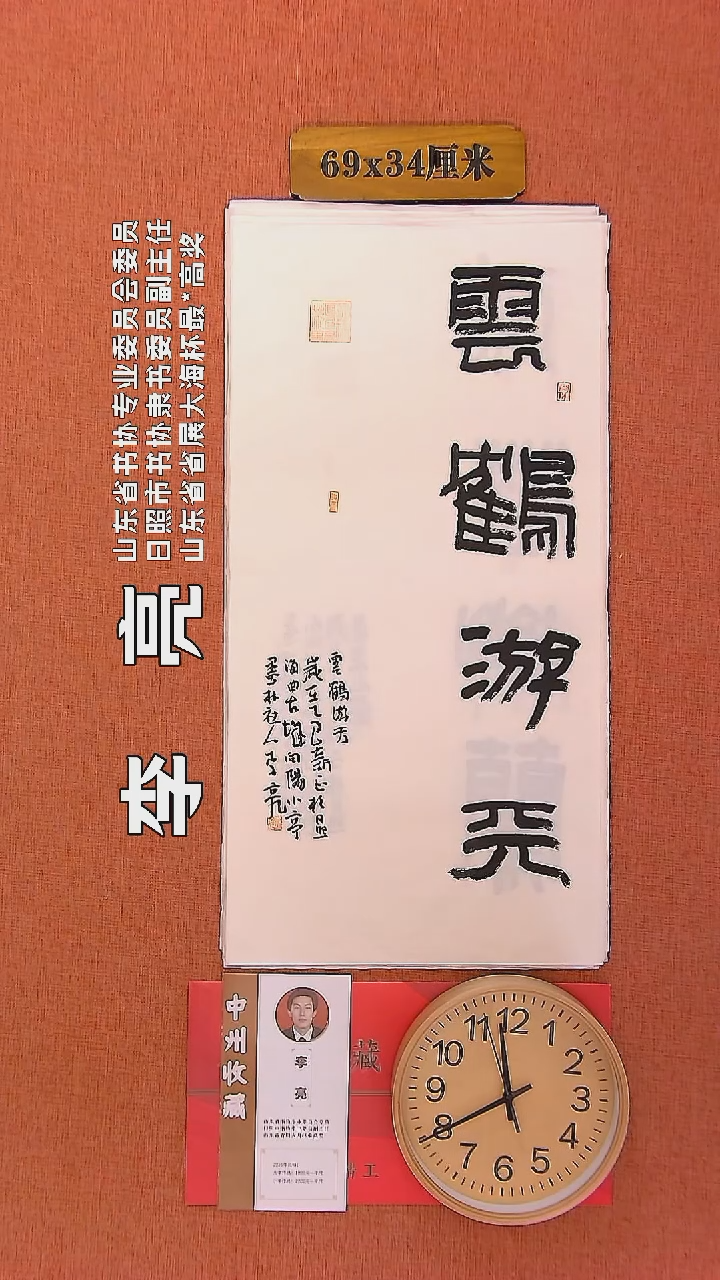 69x34厘米
山东省书协专业委员会委员
日照市书协隶书委员副主任
山东省省展大海杯最*高奖
李 亮
雲鶴游天
雲鶴游天
歲在乙巳新正於日照
海曲古城向陽小亭
墨林社人李亮
中州收藏
李亮
藏
12
1
2
3
4
5
6
7
8
9
10
11